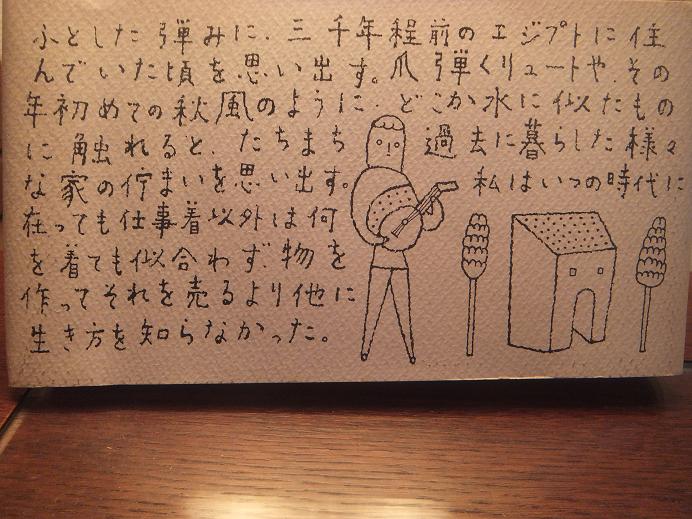 ふとした弾みに、三千年程前のエジプトに住
んでいた頃を思い出す。爪弾くリュートや、その
年初めての秋風のように、どこか水に似たもの
に触れると、たちまち過去に暮らした様々
な家の佇まいを思い出す。私はいつの時代に
在っても仕事着以外は何
を着ても似合わず、物を
作ってそれを売るより他に
生き方を知らなかった。